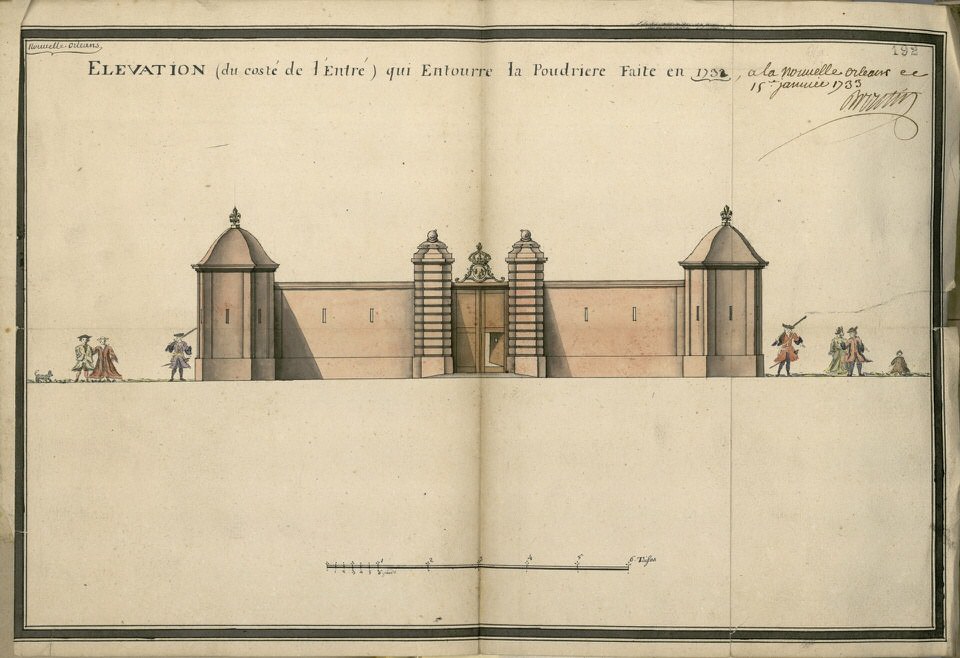 Nouvelle Orleans
192
ELEVATION (du costé de l'Entré) qui Entourre la Poudriere Faite en 1732, a la Nouvelle orleans ce
15e janvier 1733
Broutin
1 2 3 4 5 6 Toises
1 2 3 4 5 6 pieds